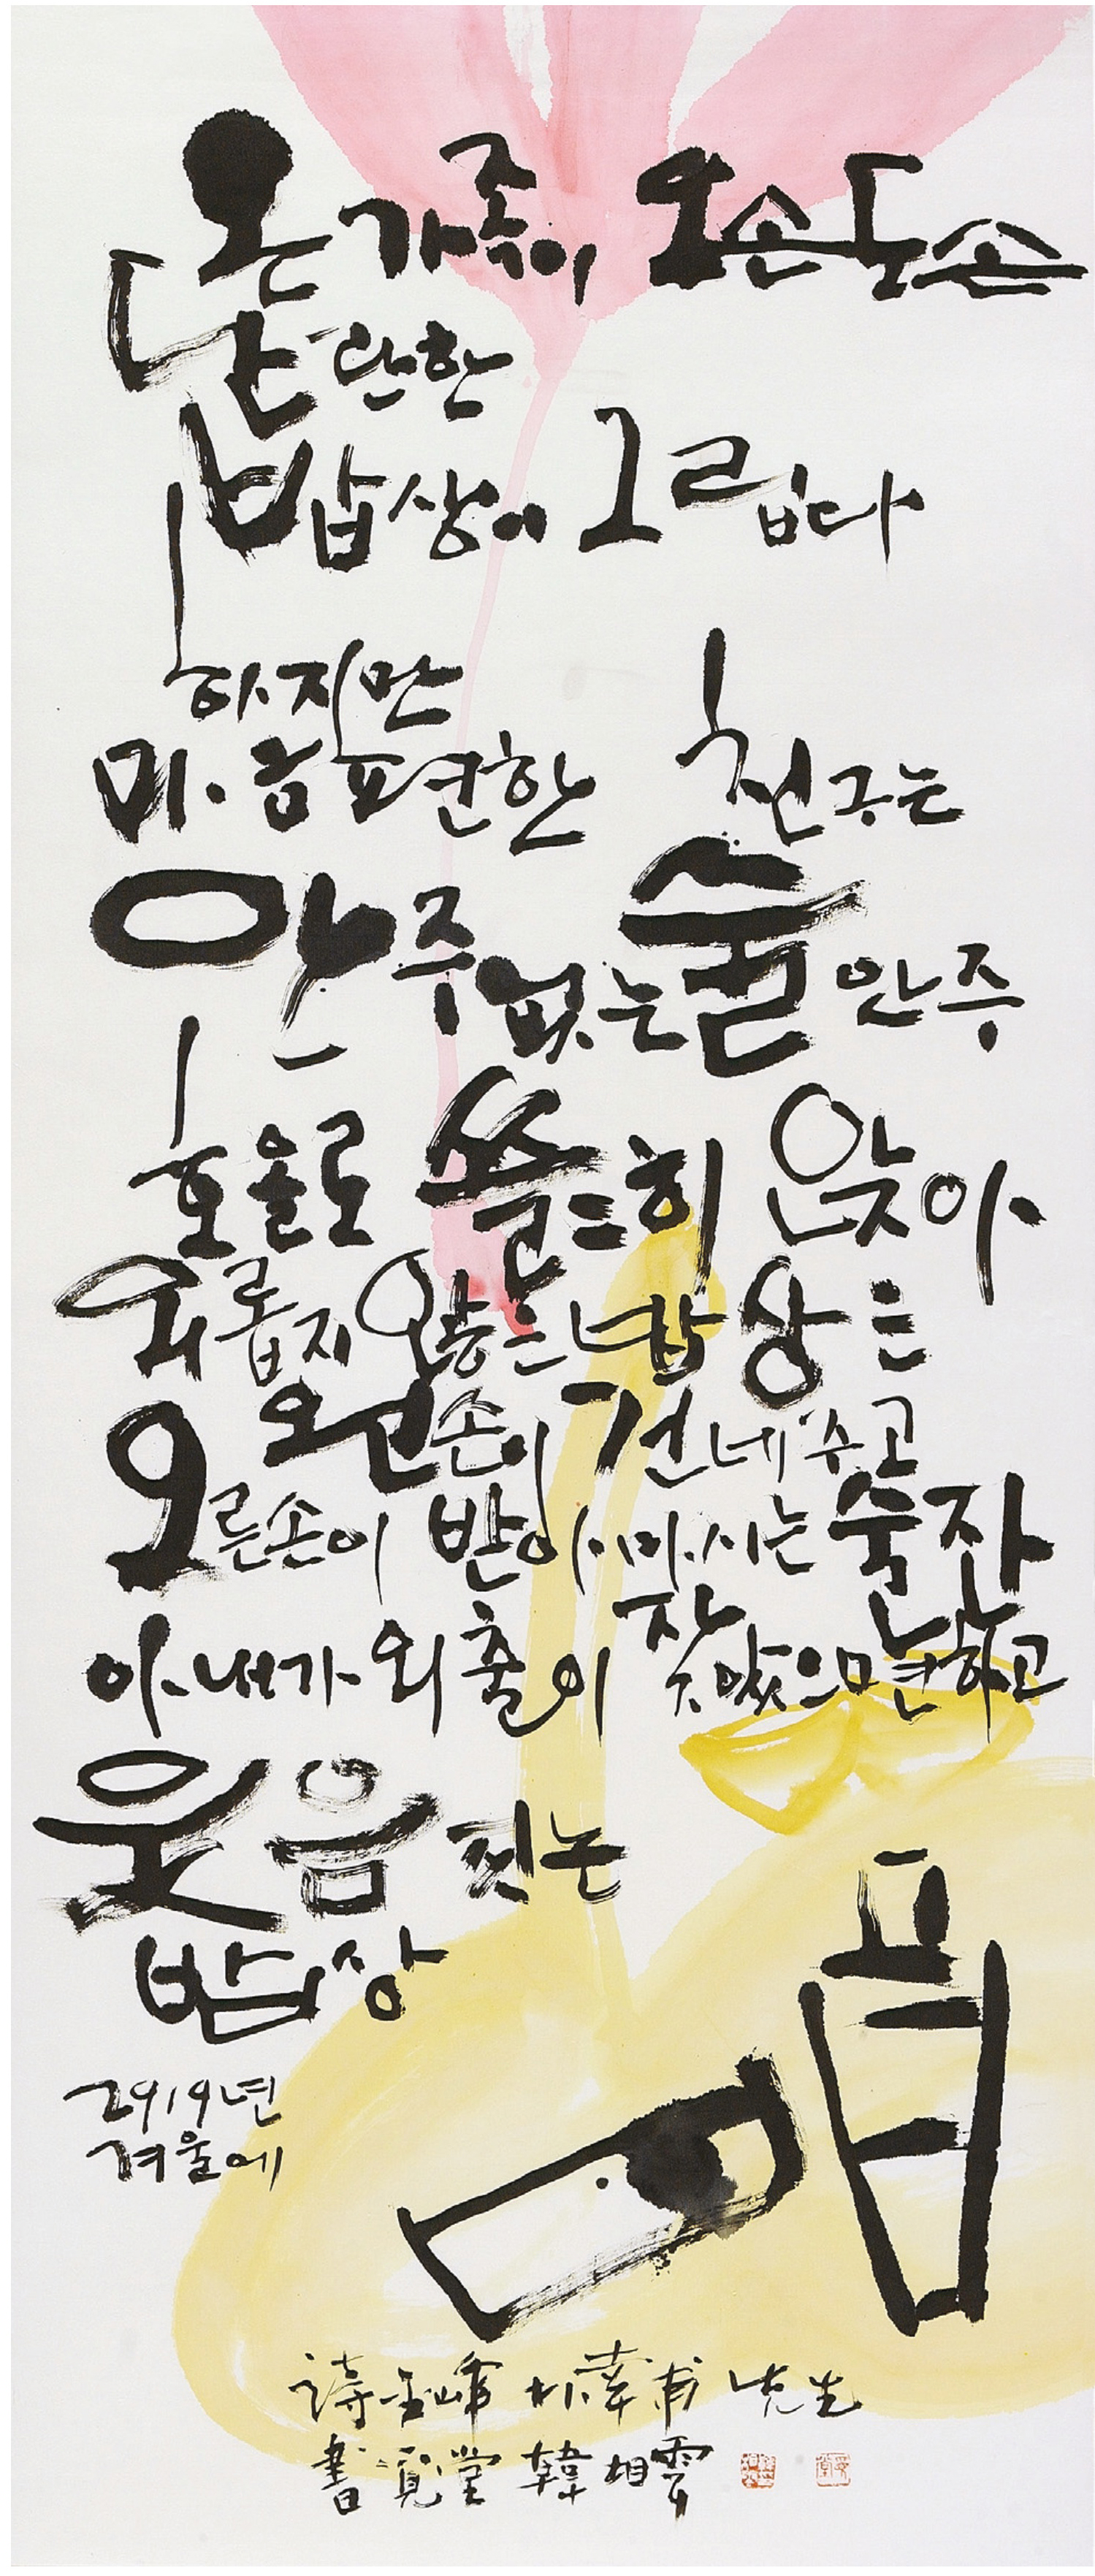 온가족이 오손도손
단란한
밥상이 그립다
하지만
마음 편한 친구는
안주 없는 술 안주
호올로 쓸쓸히 앉아
외롭지 않은 밥상은
왼손이 건네주고
오른손이 받아 마시는 술잔
아내가 외출이 잦았으면 하고
웃음 짓는
밥상
2019년
겨울에
詩 金峰 朴幸甫 先生
書 覓堂 韓相雲